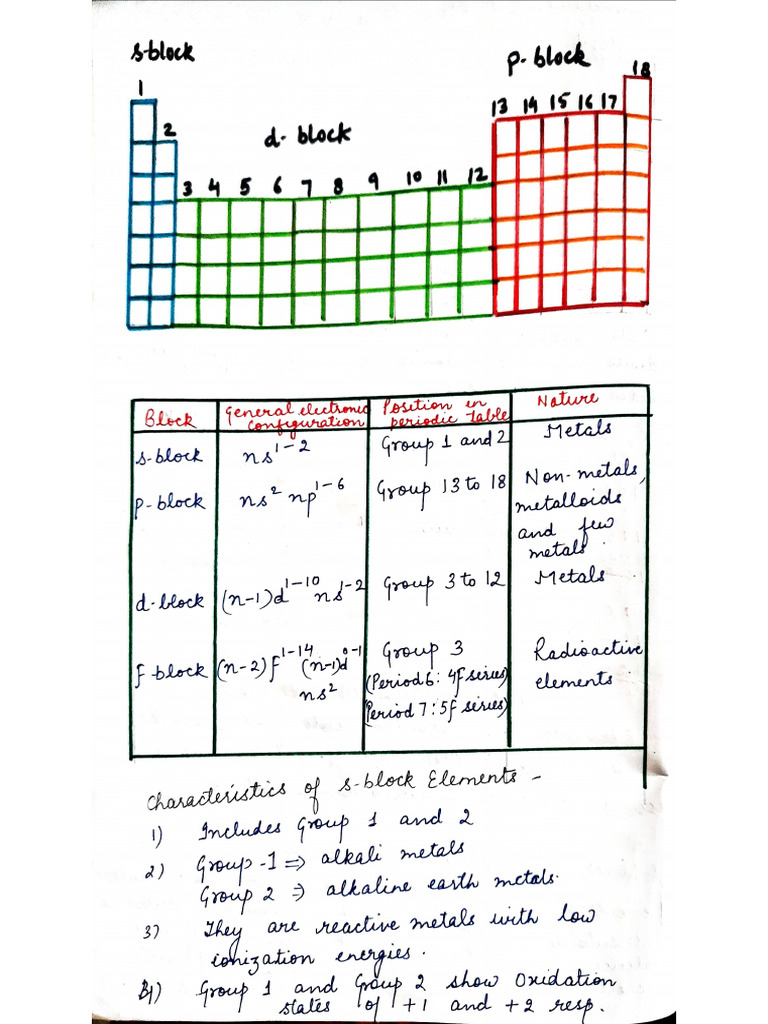 s-block
p-block
1
18
2
13 14 15 16 17
d-block
3 4 5 6 7 8 9 10 11 12
Block
General electronic configuration
Position in periodic table
Nature
s-block
ns¹⁻²
Group 1 and 2
Metals
p-block
ns² np¹⁻⁶
Group 13 to 18
Non-metals,
metalloids
and few
metals.
d-block
(n-1)d¹⁻¹⁰ ns¹⁻²
Group 3 to 12
Metals
f-block
(n-2)f¹⁻¹⁴ (n-1)d⁰⁻¹
ns²
Group 3
(Period 6: 4f series)
(Period 7: 5f series)
Radioactive
elements
Characteristics of s-block Elements -
1) Includes Group 1 and 2
2) Group-1 ⇒ alkali metals
Group 2 ⇒ alkaline earth metals.
3) They are reactive metals with low
ionization energies.
4) Group 1 and Group 2 show Oxidation
states of +1 and +2 resp.